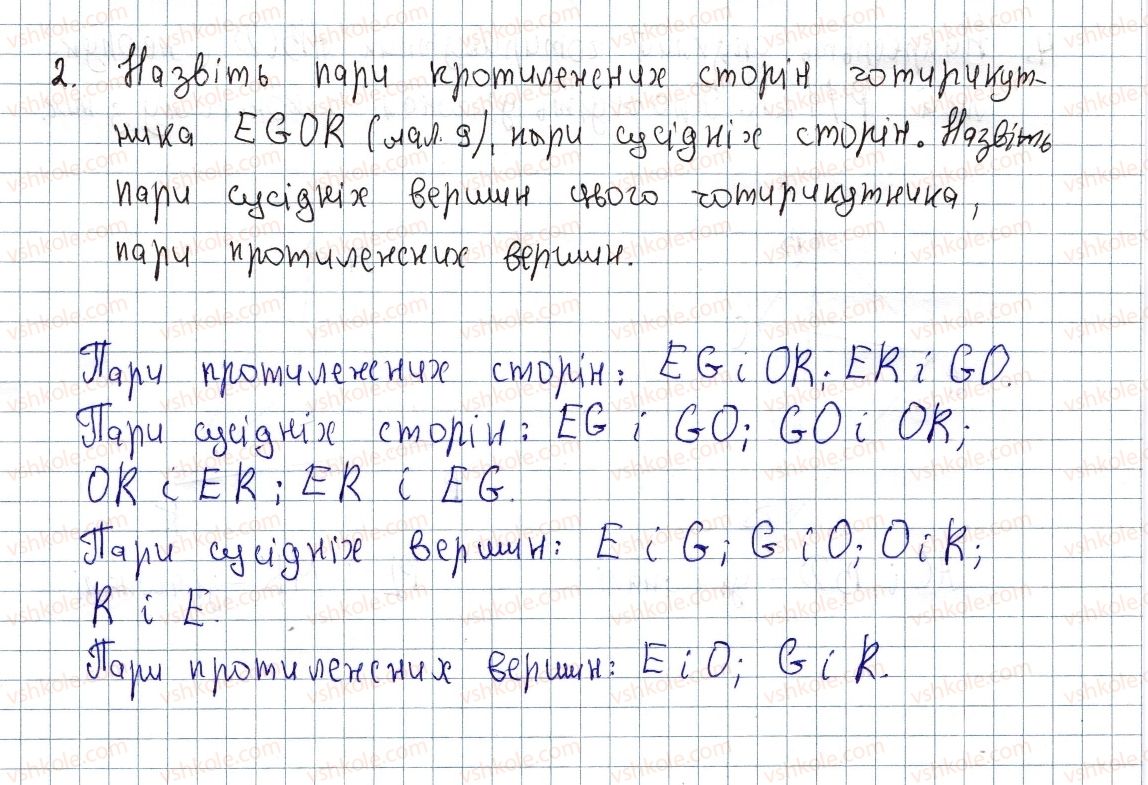 2. Назвіть пари протилежних сторін чотирикут-
ника EGOR (мал. 9), пари сусідніх сторін. Назвіть
пари сусідніх вершин цього чотирикутника,
пари протилежних вершин.
Пари протилежних сторін: EG і OR; ER і GO.
Пари сусідніх сторін: EG і GO; GO і OR;
OR і ER; ER і EG.
Пари сусідніх вершин: E і G; G і O; O і R;
R і E.
Пари протилежних вершин: E і O; G і R.